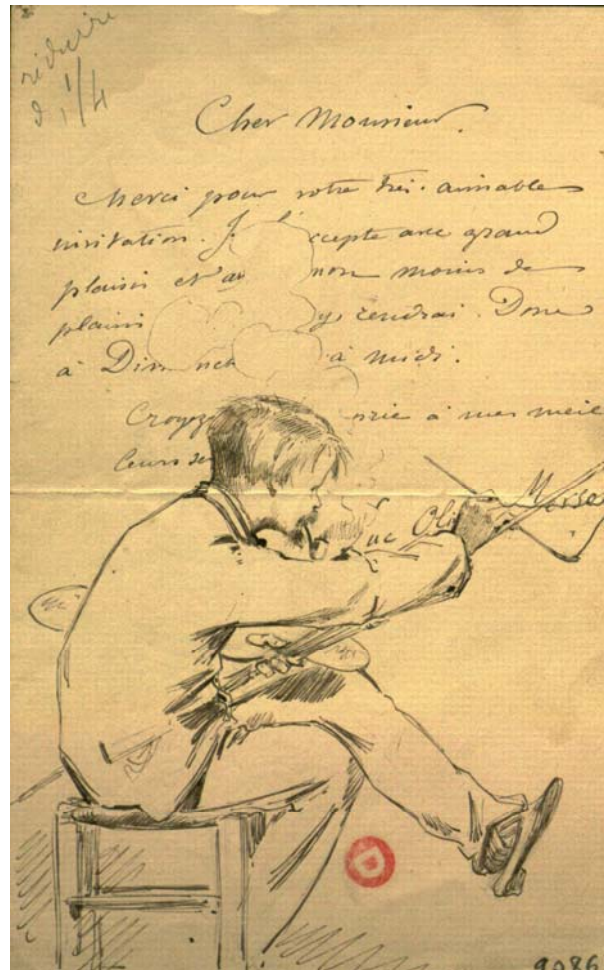 réduire
à 1/4
Cher Monsieur.
Merci pour votre très aimable
invitation. J l' ccepte avec grand
plaisir et av non moins de
plaisir y rendrai. Donc
à Dim nch à midi.
Croyez à mes meil
leurs se
Luc Oli Merso
9086